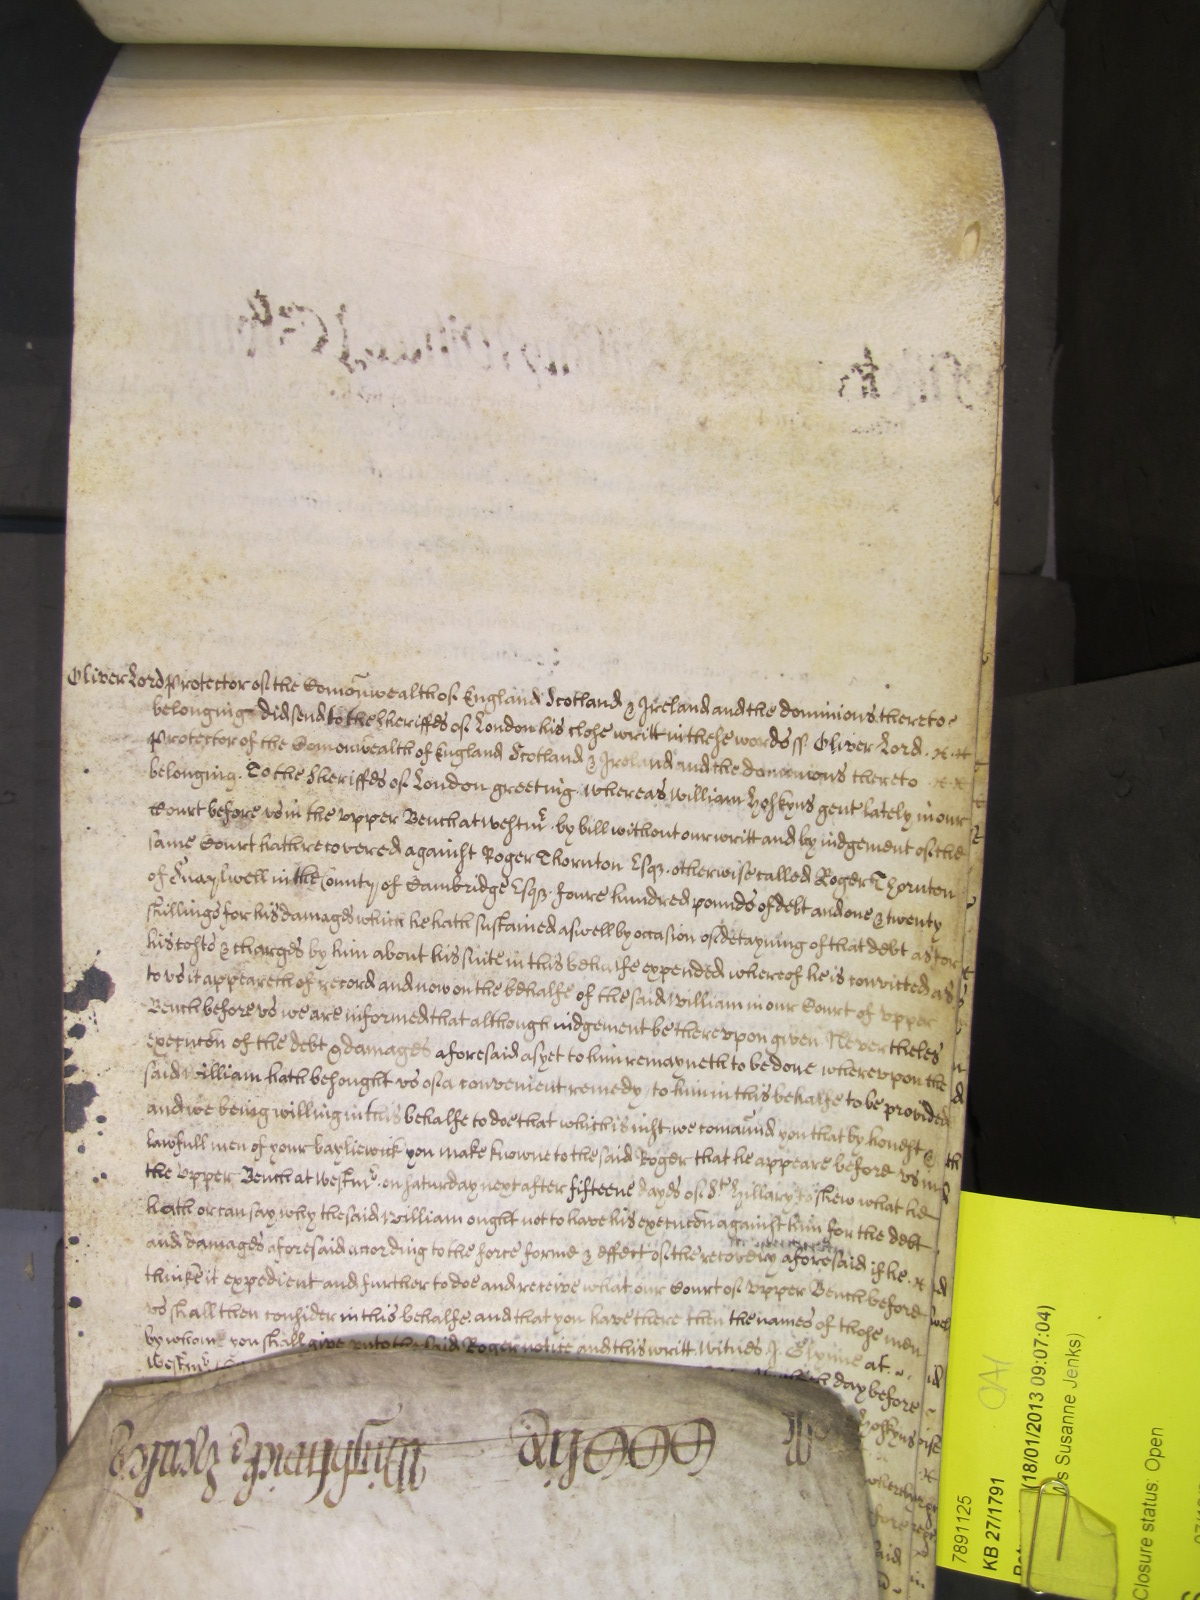 Oliver Lord Protector of the Comonwealth of England Scotland & Ireland and the dominions thereto
belonging did send to the Sheriffes of London his close writt in these words ss Oliver Lord
Protector of the Comonwealth of England Scotland & Ireland and the dominions thereto
belonging. To the Sheriffes of London greeting. whereas William Hoskyns gent lately in our
Court before us in the upper Bench at Westmr. by bill without our writt and by iudgement of the
same Court hath recovered against Roger Thornton Esqr. otherwise called Roger Thornton
of in the County of Cambridge Esqr. foure hundred pounds of debt and one & twenty
shillings for his damages which he hath sustained aswell by occasion of detayning of that debt as for
his costs & charges by him about his suite in this behalfe expended whereof he is convicted as
to us it appeareth of record and now on the behalfe of the said William in our Court of upper
Bench before us we are informed that although iudgement be thereupon given Nevertheles
execucon of the debt & damages aforesaid as yet to him remayneth to be done whereupon the
said William hath besought us of a convenient remedy to him in this behalfe to be provided
and we being willing in this behalfe to doe that which is iust, we comaund you that by honest &
lawfull men of your bayliewick you make knowne to the said Roger that he appeare before us in
the Upper Bench at Westmr. on Saturday next after fifteene dayes of St. Hillary to shew what he
hath or can say why the said William ought not to have his execucon against him for the debt
and damages aforesaid according to the force forme & effect of the recovery aforesaid if he
thinke it expedient and further to doe and receive what our Court of Upper Bench before
us shall then consider in this behalfe. and that you have there then the names of those men
by whome you shall give unto the said Roger notice and this writt. Witnes J. Glynne at
Westmr.
day before
Hoskyns
7891125
KB 27/1791
(18/01/2013 09:07:04)
Susanne Jenks)
Closure status: Open